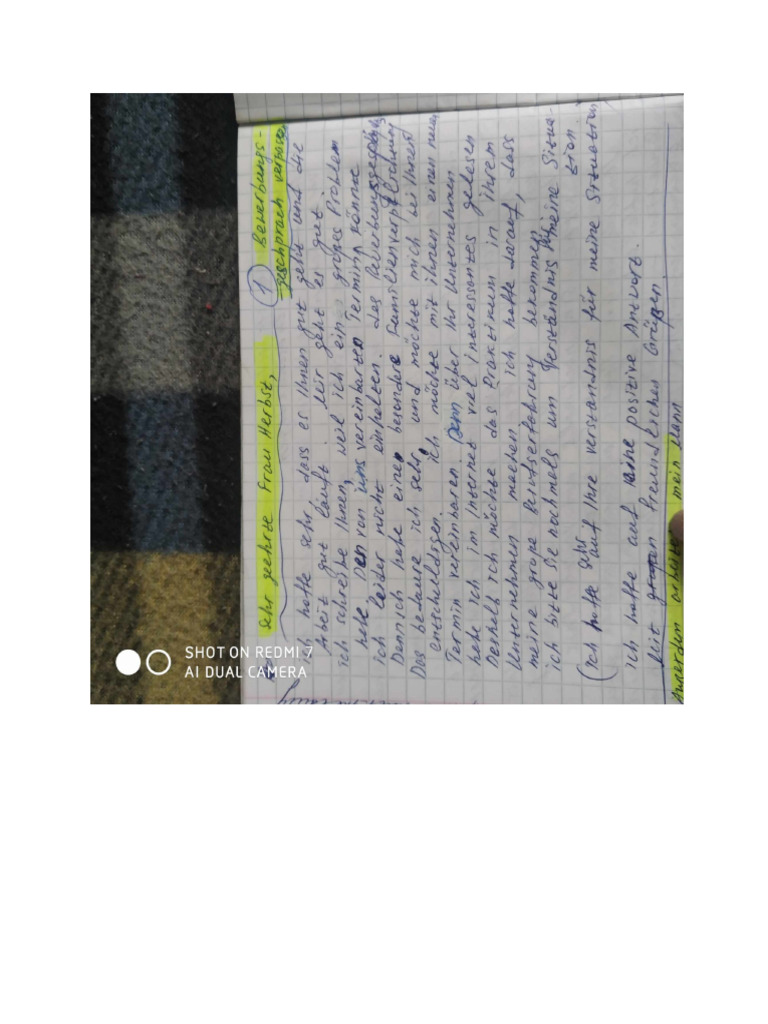 Sehr geehrte Frau Herbst, 1 Bewerbungs-
geschprach verpassen
Ich hoffe sehr, dass es Ihnen gut geht und die
Arbeit gut läuft. Mir geht es gut
ich schreibe Ihnen, weil ich ein großes Problem
habe Den von uns vereinbarten Termin könne
ich leider nicht einhalten. das Bewerbungsgespräch
Dennich habe einer besondere Familienverpflechtung
Das bedaure ich sehr, und möchte mich bei Ihnen
entschuldigen. ich möchte mit ihnen einen neuen
Termin vereinbaren. Denn über Ihr Unternehmen
habe ich im Internet viel interessantes gelesen
Deshalb ich möchte das Praktikum in ihrem
Unternehmen machen ich hoffe darauf, dass
meine große Berufserfahrung bekommen
ich bitte sie nochmals um Verständnis für meine Situa-
tion.
(ich hoffe sehr auf Ihre verständnis für meine Situation)
ich hoffe auf eine positive Antwort.
Mit freundlichen Grüßen.
Auserdem arbeite mein Mann
SHOT ON REDMI 7
AI DUAL CAMERA